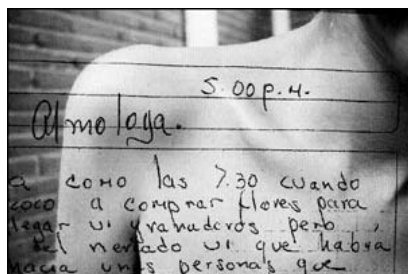 5.00 p.m.
Almoloya.
a como las 7.30 cuando
a comprar flores para
llegar vi granaderos pero
del mercado vi que había
hacia unas personas que